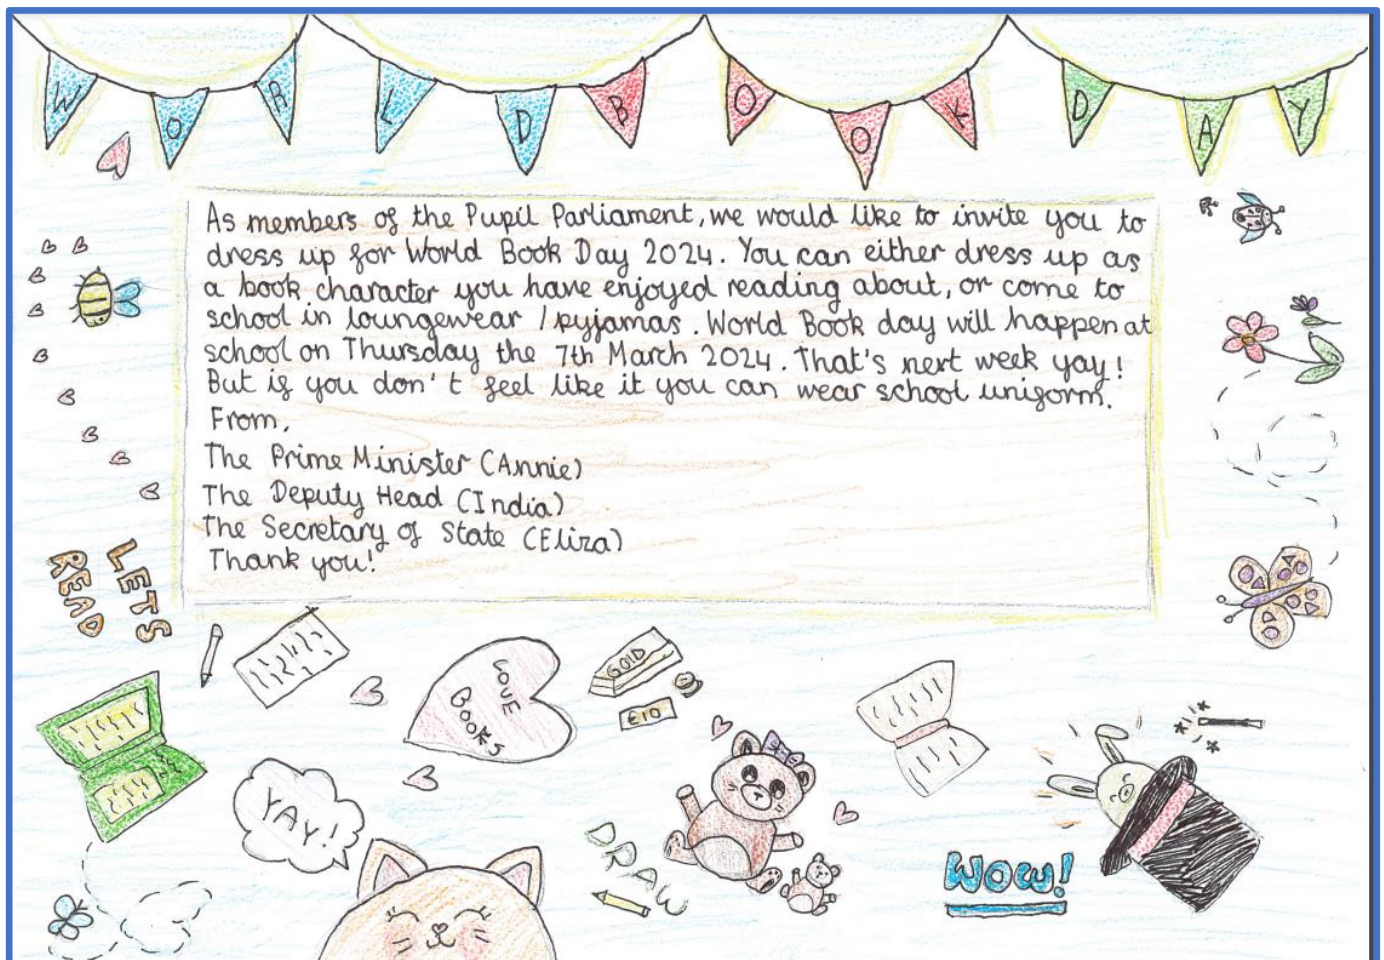 WORLD BOOK DAY
As members of the Pupil Parliament, we would like to invite you to
dress up for World Book Day 2024. You can either dress up as
a book character you have enjoyed reading about, or come to
school in loungewear / pyjamas. World Book day will happen at
school on Thursday the 7th March 2024. That's next week yay!
But if you don't feel like it you can wear school uniform.
From,
The Prime Minister (Annie)
The Deputy Head (India)
The Secretary of State (Eliza)
Thank you!
LETS
READ
LOVE
BOOKS
GOLD
£10
YAY!
DRAW
WOW!